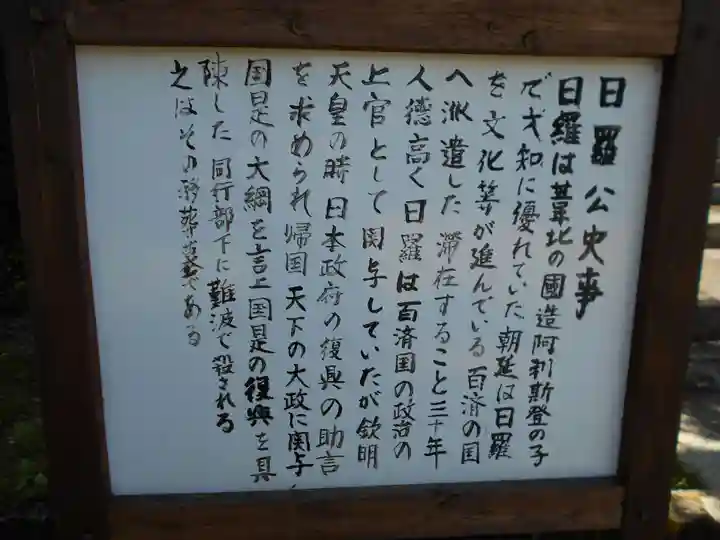 日羅公史事
日羅は葦北の國造阿利斯登の子
で才知に優れていた朝廷は日羅
を文化等が進んでいる百済の国
へ派遣した滞在すること三十年
人徳高く日羅は百済国の政治の
上官として関与していたが欽明
天皇の時日本政府の復興の助言
を求められ帰国天下の大政に関与
国是の大綱を言上国是の復興を具
陳した同行部下に難波で殺される
之はその移葬墓である